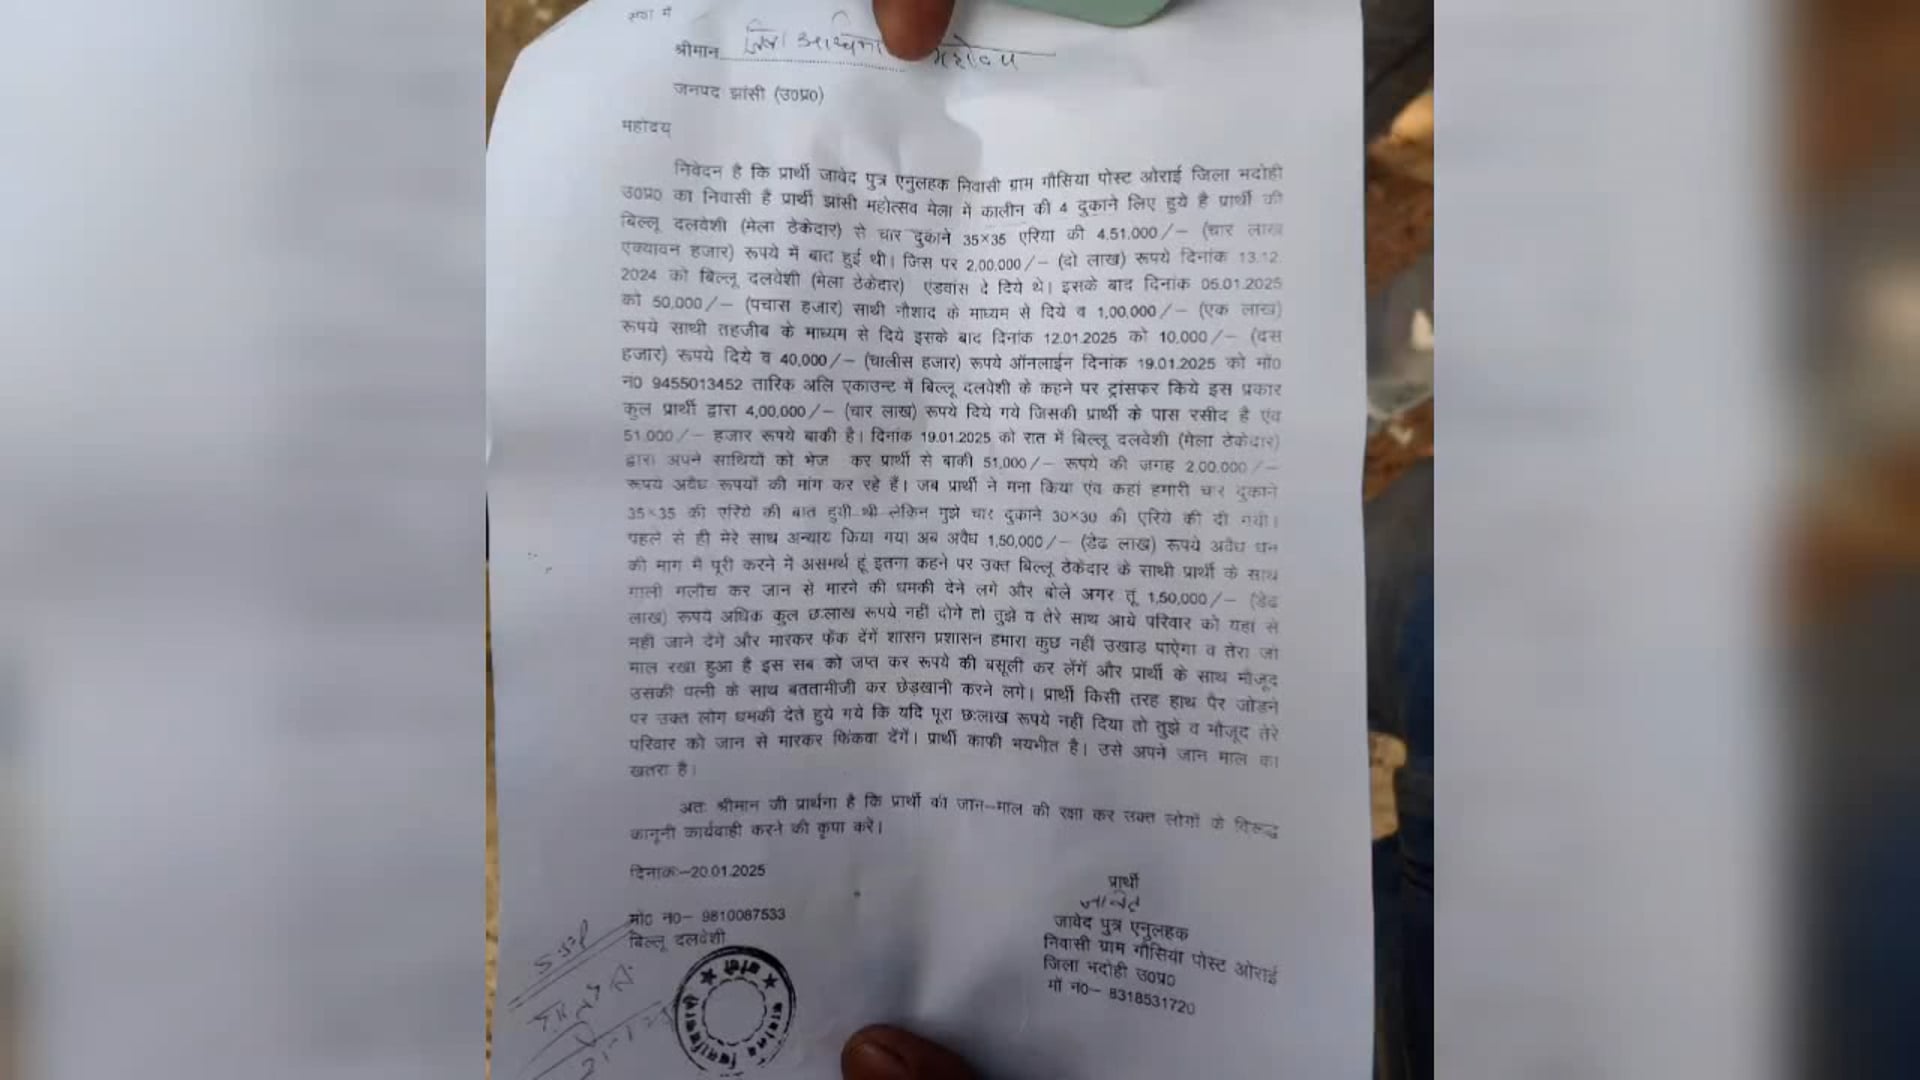 सेवा में
श्रीमान जिला अधिकारी महोदय
जनपद झांसी (उ0प्र0)
महोदय्
निवेदन है कि प्रार्थी जावेद पुत्र एनुलहक निवासी ग्राम गौसिया पोस्ट ओराई जिला भदोही
उ0प्र0 का निवासी है प्रार्थी झांसी महोत्सव मेला में कालीन की 4 दुकाने लिए हुये है प्रार्थी की
बिल्लू दलवेशी (मेला ठेकेदार) से चार दुकाने 35×35 एरिया की 4,51,000/– (चार लाख
एक्यावन हजार) रूपये में बात हुई थी। जिस पर 2,00,000/– (दो लाख) रूपये दिनांक 13.12.
2024 को बिल्लू दलवेशी (मेला ठेकेदार) एंडवांस दे दिये थे। इसके बाद दिनांक 05.01.2025
को 50,000/– (पचास हजार) साथी नौशाद के माध्यम से दिये व 1,00,000/– (एक लाख)
रूपये साथी तहजीब के माध्यम से दिये इसके बाद दिनांक 12.01.2025 को 10,000/– (दस
हजार) रूपये दिये व 40,000/– (चालीस हजार) रूपये ऑनलाईन दिनांक 19.01.2025 को मों0
नं0 9455013452 तारिक अलि एकाउन्ट में बिल्लू दलवेशी के कहने पर ट्रांसफर किये इस प्रकार
कुल प्रार्थी द्वारा 4,00,000/– (चार लाख) रूपये दिये गये जिसकी प्रार्थी के पास रसीद है एंव
51,000/– हजार रूपये बाकी है। दिनांक 19.01.2025 को रात में बिल्लू दलवेशी (मेला ठेकेदार)
द्वारा अपने साथियों को भेज कर प्रार्थी से बाकी 51,000/– रूपये की जगह 2,00,000/–
रूपये अवैध रूपयों की मांग कर रहे हैं। जब प्रार्थी ने मना किया एंव कहां हमारी चार दुकाने
35×35 की एरिये की बात हुयी थी लेकिन मुझे चार दुकाने 30×30 की एरिये की दी गयी।
पहले से ही मेरे साथ अन्याय किया गया अब अवैध 1,50,000/– (डेढ लाख) रूपये अवैध धन
की मांग मै पूरी करने में असमर्थ हूं इतना कहने पर उक्त बिल्लू ठेकेदार के साथी प्रार्थी के साथ
गाली गलौच कर जान से मारने की धमकी देने लगे और बोले अगर तूं 1,50,000/– (डेढ
लाख) रूपये अधिक कुल छःलाख रूपये नहीं दोगे तो तुझे व तेरे साथ आये परिवार को यहां से
नहीं जाने देगे और मारकर फेंक देंगें शासन प्रशासन हमारा कुछ नहीं उखाड पाऐगा व तेरा जो
माल रखा हुआ है इस सब को जप्त कर रूपये की बसूली कर लेंगें और प्रार्थी के साथ मौजूद
उसकी पत्नी के साथ बततामीजी कर छेड़खानी करने लगे। प्रार्थी किसी तरह हाथ पैर जोडने
पर उक्त लोग धमकी देते हुये गये कि यदि पूरा छःलाख रूपये नहीं दिया तो तुझे व मौजूद तेरे
परिवार को जान से मारकर फिंकवा देंगें। प्रार्थी काफी भयभीत है। उसे अपने जान माल का
खतरा है।
अतः श्रीमान जी प्रार्थना है कि प्रार्थी की जान–माल की रक्षा कर उक्त लोगों के विरूद्ध
कानूनी कार्यवाही करने की कृपा करें।
दिनांकः–20.01.2025
मो0 नं0– 9810087533
बिल्लू दलवेशी
प्रार्थी
जावेद
जावेद पुत्र एनुलहक
निवासी ग्राम गौसिया पोस्ट ओराई
जिला भदोही उ0प्र0
मों नं0– 8318531720
SSP
कार्यालय जिलाधिकारी झांसी